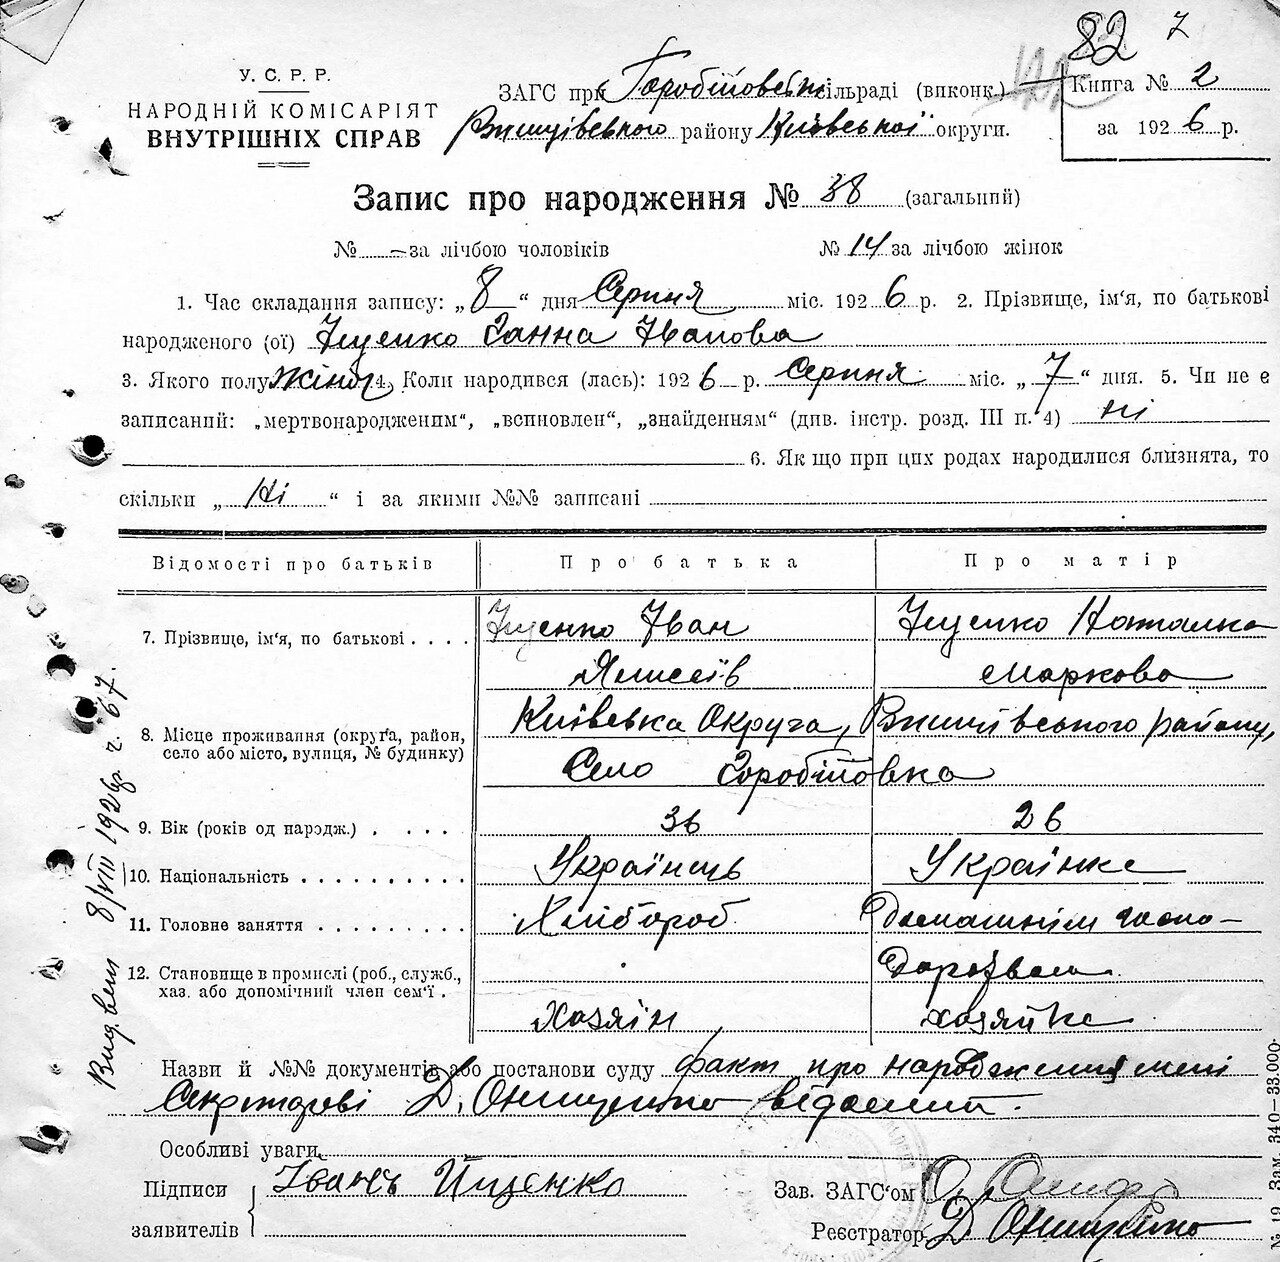 82 7
У. С. Р. Р.
НАРОДНІЙ КОМІСАРІЯТ
ВНУТРІШНІХ СПРАВ
ЗАГС при Горобіївській сільраді (виконк.)
району Київської округи.
Книга № 2
за 1926 р.
Запис про народження № 38 (загальний)
№ – за лічбою чоловіків № 14 за лічбою жінок
1. Час складання запису: „8“ дня Серпня міс. 1926 р. 2. Прізвище, ім'я, по батькові
народженого (ої) Іщенко Ганна Іванова
3. Якого полу Жіноч. 4. Коли народився (лась): 1926 р. Серпня міс. „7“ дня. 5. Чи не є
записаний: „мертвонародженим“, „всиновлен“, „знайденням“ (див. інстр. розд. III п. 4) ні
6. Якщо при цих родах народилися близнята, то
скільки „Ні“ і за якими №№ записані
Відомості про батьків Про батька Про матір
7. Прізвище, ім'я, по батькові . . . . Іщенко Іван Іщенко Наталка
Ялисеїв Маркова
8. Місце проживання (округа, район, село або місто, вулиця, № будинку) Київська Округа, району,
Село Горобіївка
9. Вік (років од нарэдж.) . . . . . 36 26
10. Національність . . . . . . . . . . Українець Українка
11. Головне заняття . . . . . . . . . Хлібороб Домашнім госпо-
12. Становище в промислі (роб., служб., дарством
хаз. або допомічний член сем'ї . Хазяін хазяйка
Назви й №№ документів або постанови суду факт про народження мені
Секретареві Д. Онищенко відомий.
Особливі уваги
Підписи заявителів Іванъ Ищенко
Зав. ЗАГС'ом
Реєстратор Д Онищенко
8/VIII 1926 г. ч. 67.
№ 19. Зам. 340–33.000